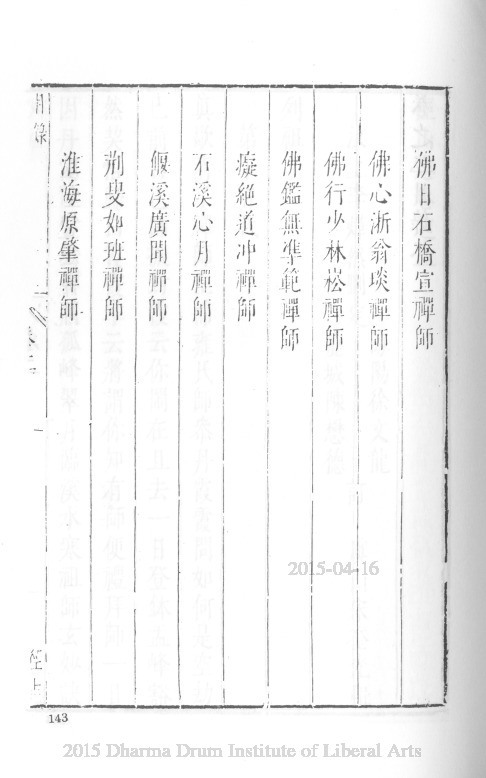 佛日石橋宣禪師
佛心浙翁琰禪師
佛行少林崧禪師
佛鑑無準範禪師
癡絕道冲禪師
石溪心月禪師
偃溪廣聞禪師
荊叟如班禪師
淮海原肇禪師
目錄
卷二
一
143
2015-04-16
2015 Dharma Drum Institute of Liberal Arts